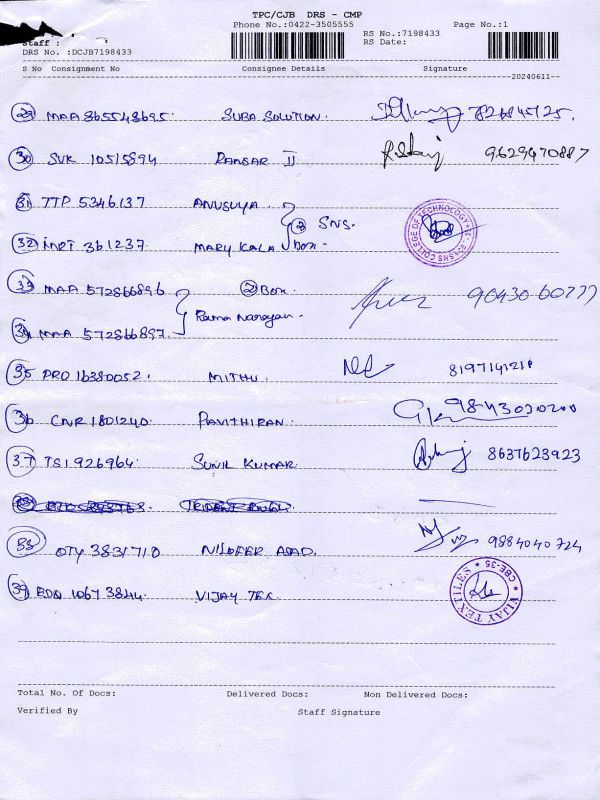 TPC/CJB DRS - CMP
Phone No.:0422-3505555 Page No.:1
RS No.:7198433
Staff : RS Date:
DRS No. :DCJB7198433
S No Consignment No Consignee Details Signature
20240611
29 MAA 865548695. SUBA SOLUTION.
30 SVK 10515894 RANSAR II 9629470887
31 TTP 5346137 ANUSUYA
② SNS.
32 MRT 361237. MARY KALA Box.
33 MAA 572866896 ② Box
Rama Narayan.
34 MAA 572866897.
35 PRO 16380052. MITHU.
36 CNR 1801240. PAVITHIRAN. 9843020200
37 TS1926964. SUNIL KUMAR. 8637623923
38 OTY 3831710 NILOFER ASAD. 9884040724
39 EDD 10673844. VIJAY TEX.
VIJAY TEXTILES * CBE-35 *
Total No. Of Docs: Delivered Docs: Non Delivered Docs:
Verified By Staff Signature